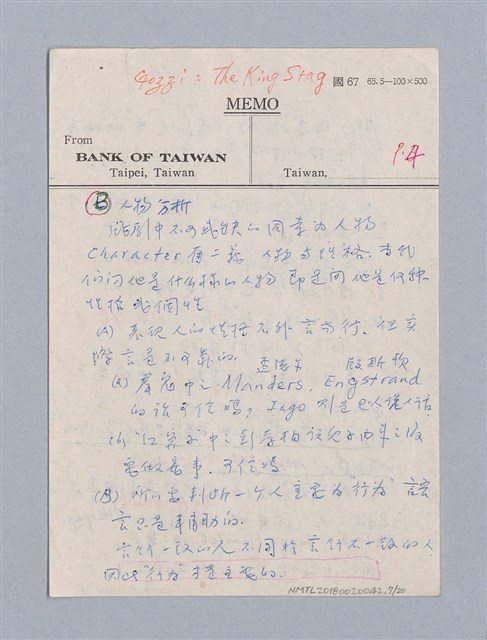 Gozzi : The King Stag
國 67 65.5—100×500
MEMO
From
BANK OF TAIWAN
Taipei, Taiwan
Taiwan,
P.4
Ⓑ 人物分析
戲劇中不可或缺的因素為人物
Character有二義 人物与性格. 当我
們問他是什么樣的人物 即是問他是何種
性格或個性
(A) 表現人的性格不外言与行. 但实
際言是不可靠的.
孟德文 殷斯牧
(a) 羣鬼中之 Manders, Engstrand
的話可信嗎, Iago 則是
中之彭
可信嗎.
(B) 所以要判断一个人主要为"行为" 語言
言只是輔助的.
言行一致的人不同於言行不一致的人
因此"行为"才是主要的.
NMTL20180020042.7/20